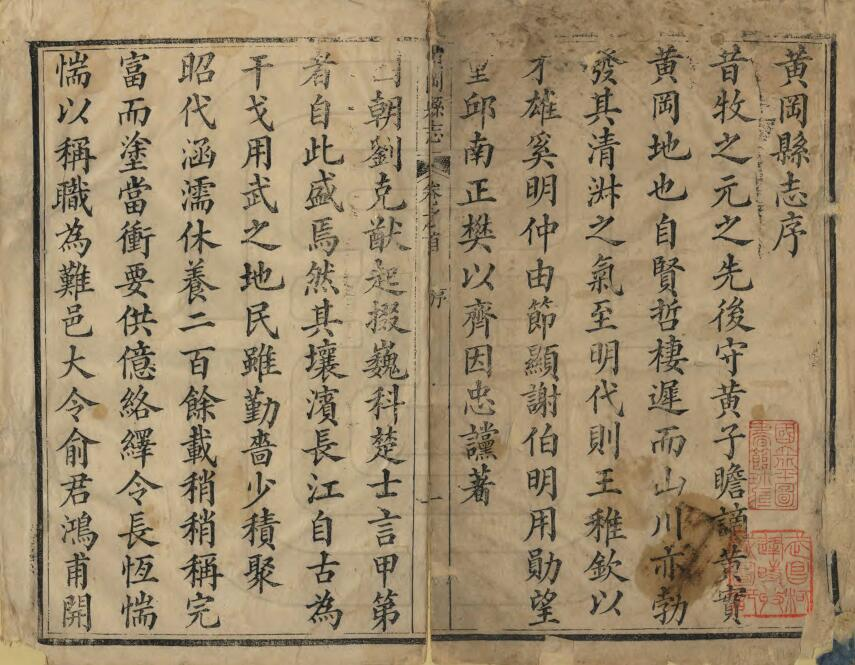 黄岡縣志序
昔牧之元之先後守黄子瞻謫黄實
黄岡地也自賢哲棲遲而山川亦勃
發其清淑之氣至明代則王稚欽以
才雄奚明仲由節顯謝伯明用勛望
邱南正樊以齊因忠讜著
岡縣志 卷之首 序 一
朝劉克猷起掇巍科楚士言甲第
者自此盛焉然其壤濱長江自古為
干戈用武之地民雖勤嗇少積聚
昭代涵濡休養二百餘載稍稍稱完
富而塗當衝要供億絡繹令長恆惴
惴以稱職為難邑大令俞君鴻甫開